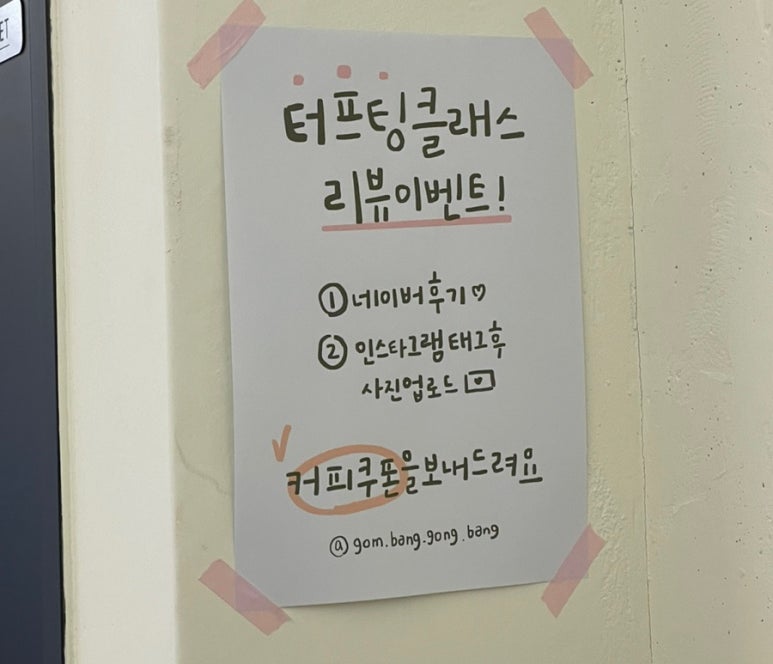 ET
터프팅클래스
리뷰이벤트!
① 네이버후기♡
② 인스타그램태그후
사진업로드
커피쿠폰을보내드려요
@gom.bang.gong.bang